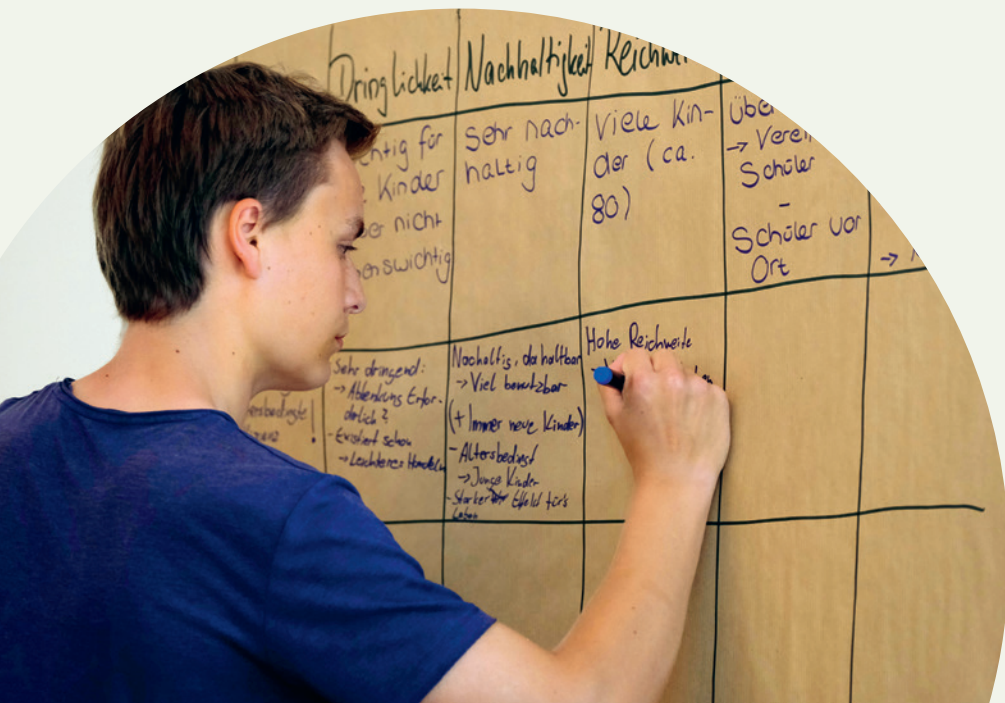 Dringlichkeit
Nachhaltigkeit
für
Kinder
nicht
Sehr nach-
haltig
Viele Kin-
der (ca.
80)
→
Schüler
-
Schüler vor
Ort
→
!
Sehr dringend:
→ Ablenkung Erfor-
derlich?
- Existiert schon
→ Leichteres Handeln
Nachaltig, da haltbar
→ Viel benutzbar
(+ Immer neue Kinder)
- Altersbedingt
→ Junge Kinder
- Starker Effekt für's
Leben
Hohe Reichweite